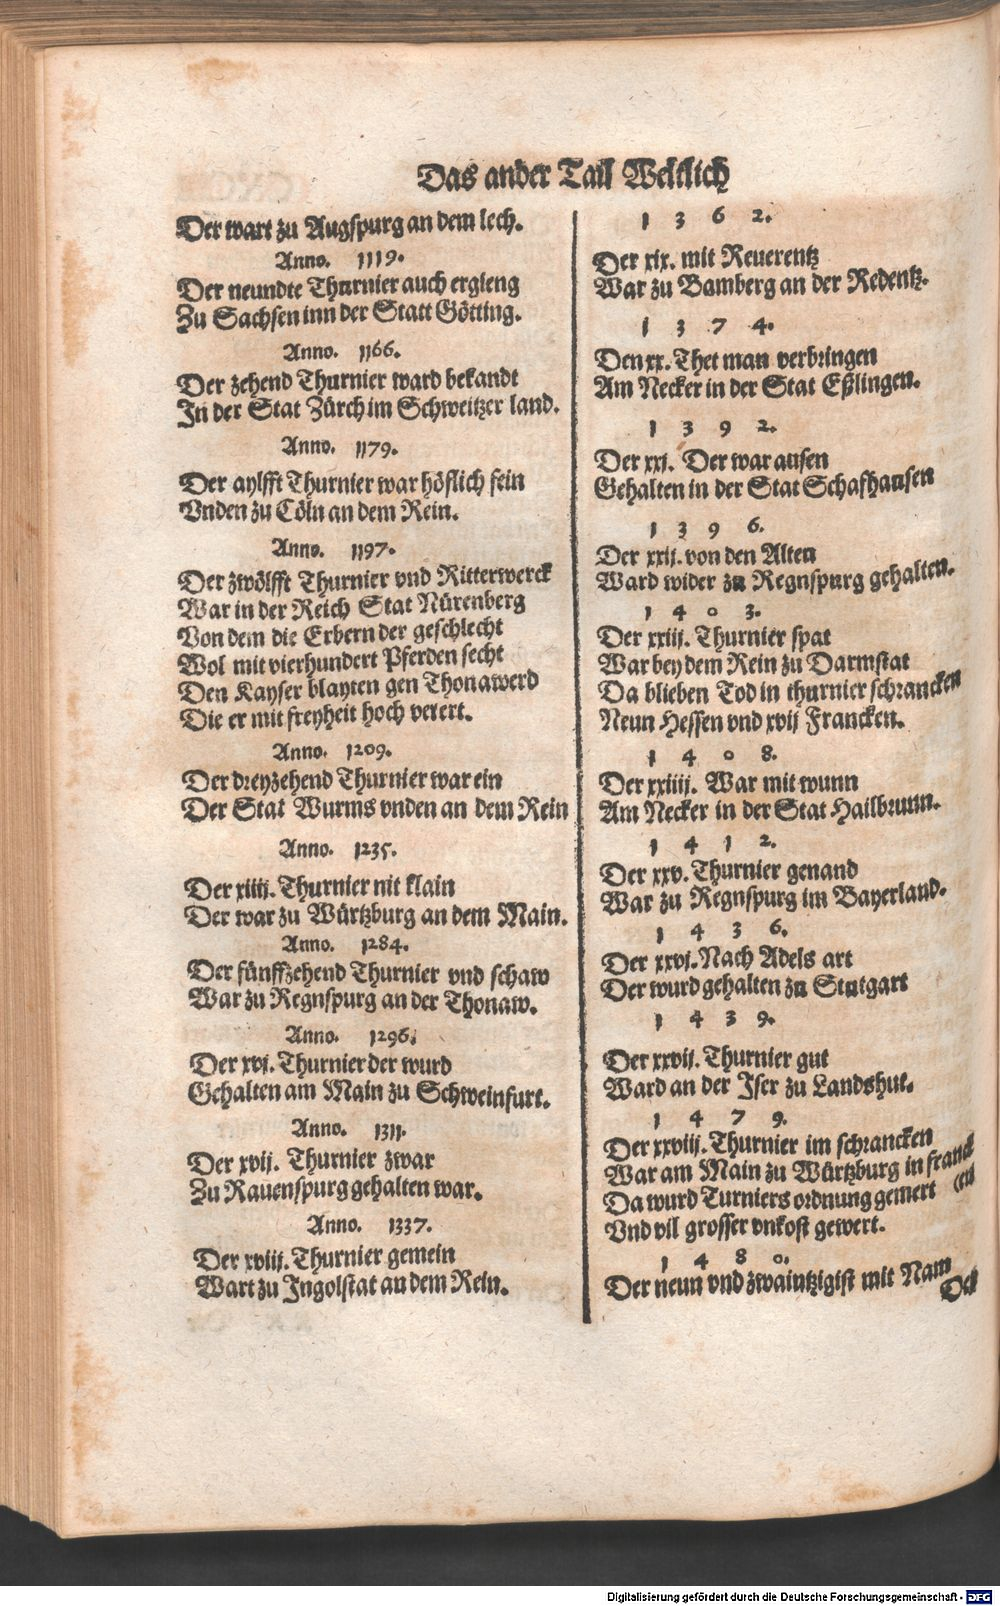 Das ander Tail Weltlich
Der wart zu Augspurg an dem lech.
Anno. 1119.
Der neundte Thurnier auch ergieng
Zu Sachsen inn der Statt Götting.
Anno. 1166.
Der zehend Thurnier ward bekandt
In der Stat Zürch im Schweitzer land.
Anno. 1179.
Der aylfft Thurnier war höflich fein
Vnden zu Cöln an dem Rein.
Anno. 1197.
Der zwölfft Thurnier vnd Ritterwerck
War in der Reich Stat Nürenberg
Von dem die Erbern der geschlecht
Wol mit vierhundert Pferden secht
Den Kayser blayten gen Thonawerd
Die er mit freyheit hoch verert.
Anno. 1209.
Der dreyzehend Thurnier war ein
Der Stat Wurms vnden an dem Rein
Anno. 1235.
Der xiiij. Thurnier nit klain
Der war zu Würtzburg an dem Main.
Anno. 1284.
Der fünffzehend Thurnier vnd schaw
War zu Regnspurg an der Thonaw.
Anno. 1296.
Der xvj. Thurnier der wurd
Gehalten am Main zu Schweinfurt.
Anno. 1311.
Der xvij. Thurnier zwar
Zu Rauenspurg gehalten war.
Anno. 1337.
Der xviij. Thurnier gemein
Wart zu Ingolstat an dem Rein.
1 3 6 2.
Der xix. mit Reuerentz
War zu Bamberg an der Redentz.
1 3 7 4.
Den xx. Thet man verbringen
Am Necker in der Stat Eßlingen.
1 3 9 2.
Der xxj. Der war ausen
Gehalten in der Stat Schafhausen
1 3 9 6.
Der xxij. von den Alten
Ward wider zu Regnspurg gehalten.
1 4 0 3.
Der xxiij. Thurnier spat
War bey dem Rein zu Darmstat
Da blieben Tod in thurnier schrancken
Neun Hessen vnd xvij Francken.
1 4 0 8.
Der xxiiij. War mit wunn
Am Necker in der Stat Hailbrunn.
1 4 1 2.
Der xxv. Thurnier genand
War zu Regnspurg im Bayerland.
1 4 3 6.
Der xxvj. Nach Adels art
Der wurd gehalten zu Stutgart
1 4 3 9.
Der xxvij. Thurnier gut
Ward an der Iser zu Landshut.
1 4 7 9.
Der xxviij. Thurnier im schrancken
War am Main zu Würtzburg in franck
Da wurd Turniers ordnung gemert (en
Vnd vil grosser vnkost gewert.
1 4 8 0.
Der neun vnd zwaintzigist mit Nam
Digitalisierung gefördert durch die Deutsche Forschungsgemeinschaft - DFG